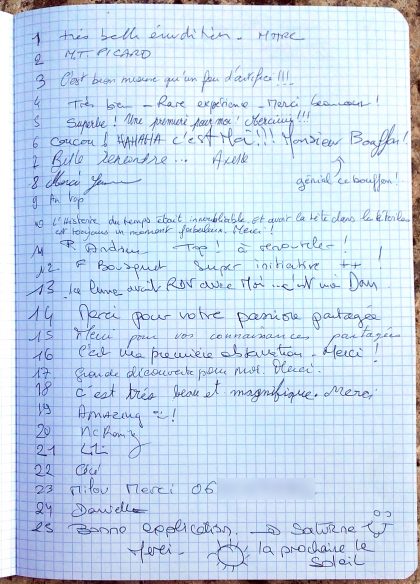 1 très belle érudition. MOTRE
2 M.T. PICARD
3 C'est bien mieux qu'un feu d'artifice !!!
4 Très bien - Rare expérience - Merci beaucoup !
5 Superbe ! Une première pour moi ! Merciiii !!!
6 COUCOU ! HAHAHA c'est Moi !!! Monsieur Bouffon !
7 Belle Rencontre... Axelle
génial ce bouffon !
8 Merci
9 Au top
10 L'Histoire du temps était inoubliable et avoir la tête dans les étoiles
est toujours un moment fabuleux. Merci !
11 P. Andrieu Top ! à renouveler !
12 F Bousquet Super initiative ++ !
13 la lune avait RDV avec Moi
14 Merci pour votre passion partagée
15 Merci pour vos connaissances partagées
16 C'est ma première observation. Merci !
17 Grande découverte pour moi. Merci.
18 C'est très beau et magnifique. Merci
19 Amazing !
20
21
22
23 Milou Merci 06
24 Danielle
25 Bonne application. → Saturne
Merci - la prochaine le
Soleil